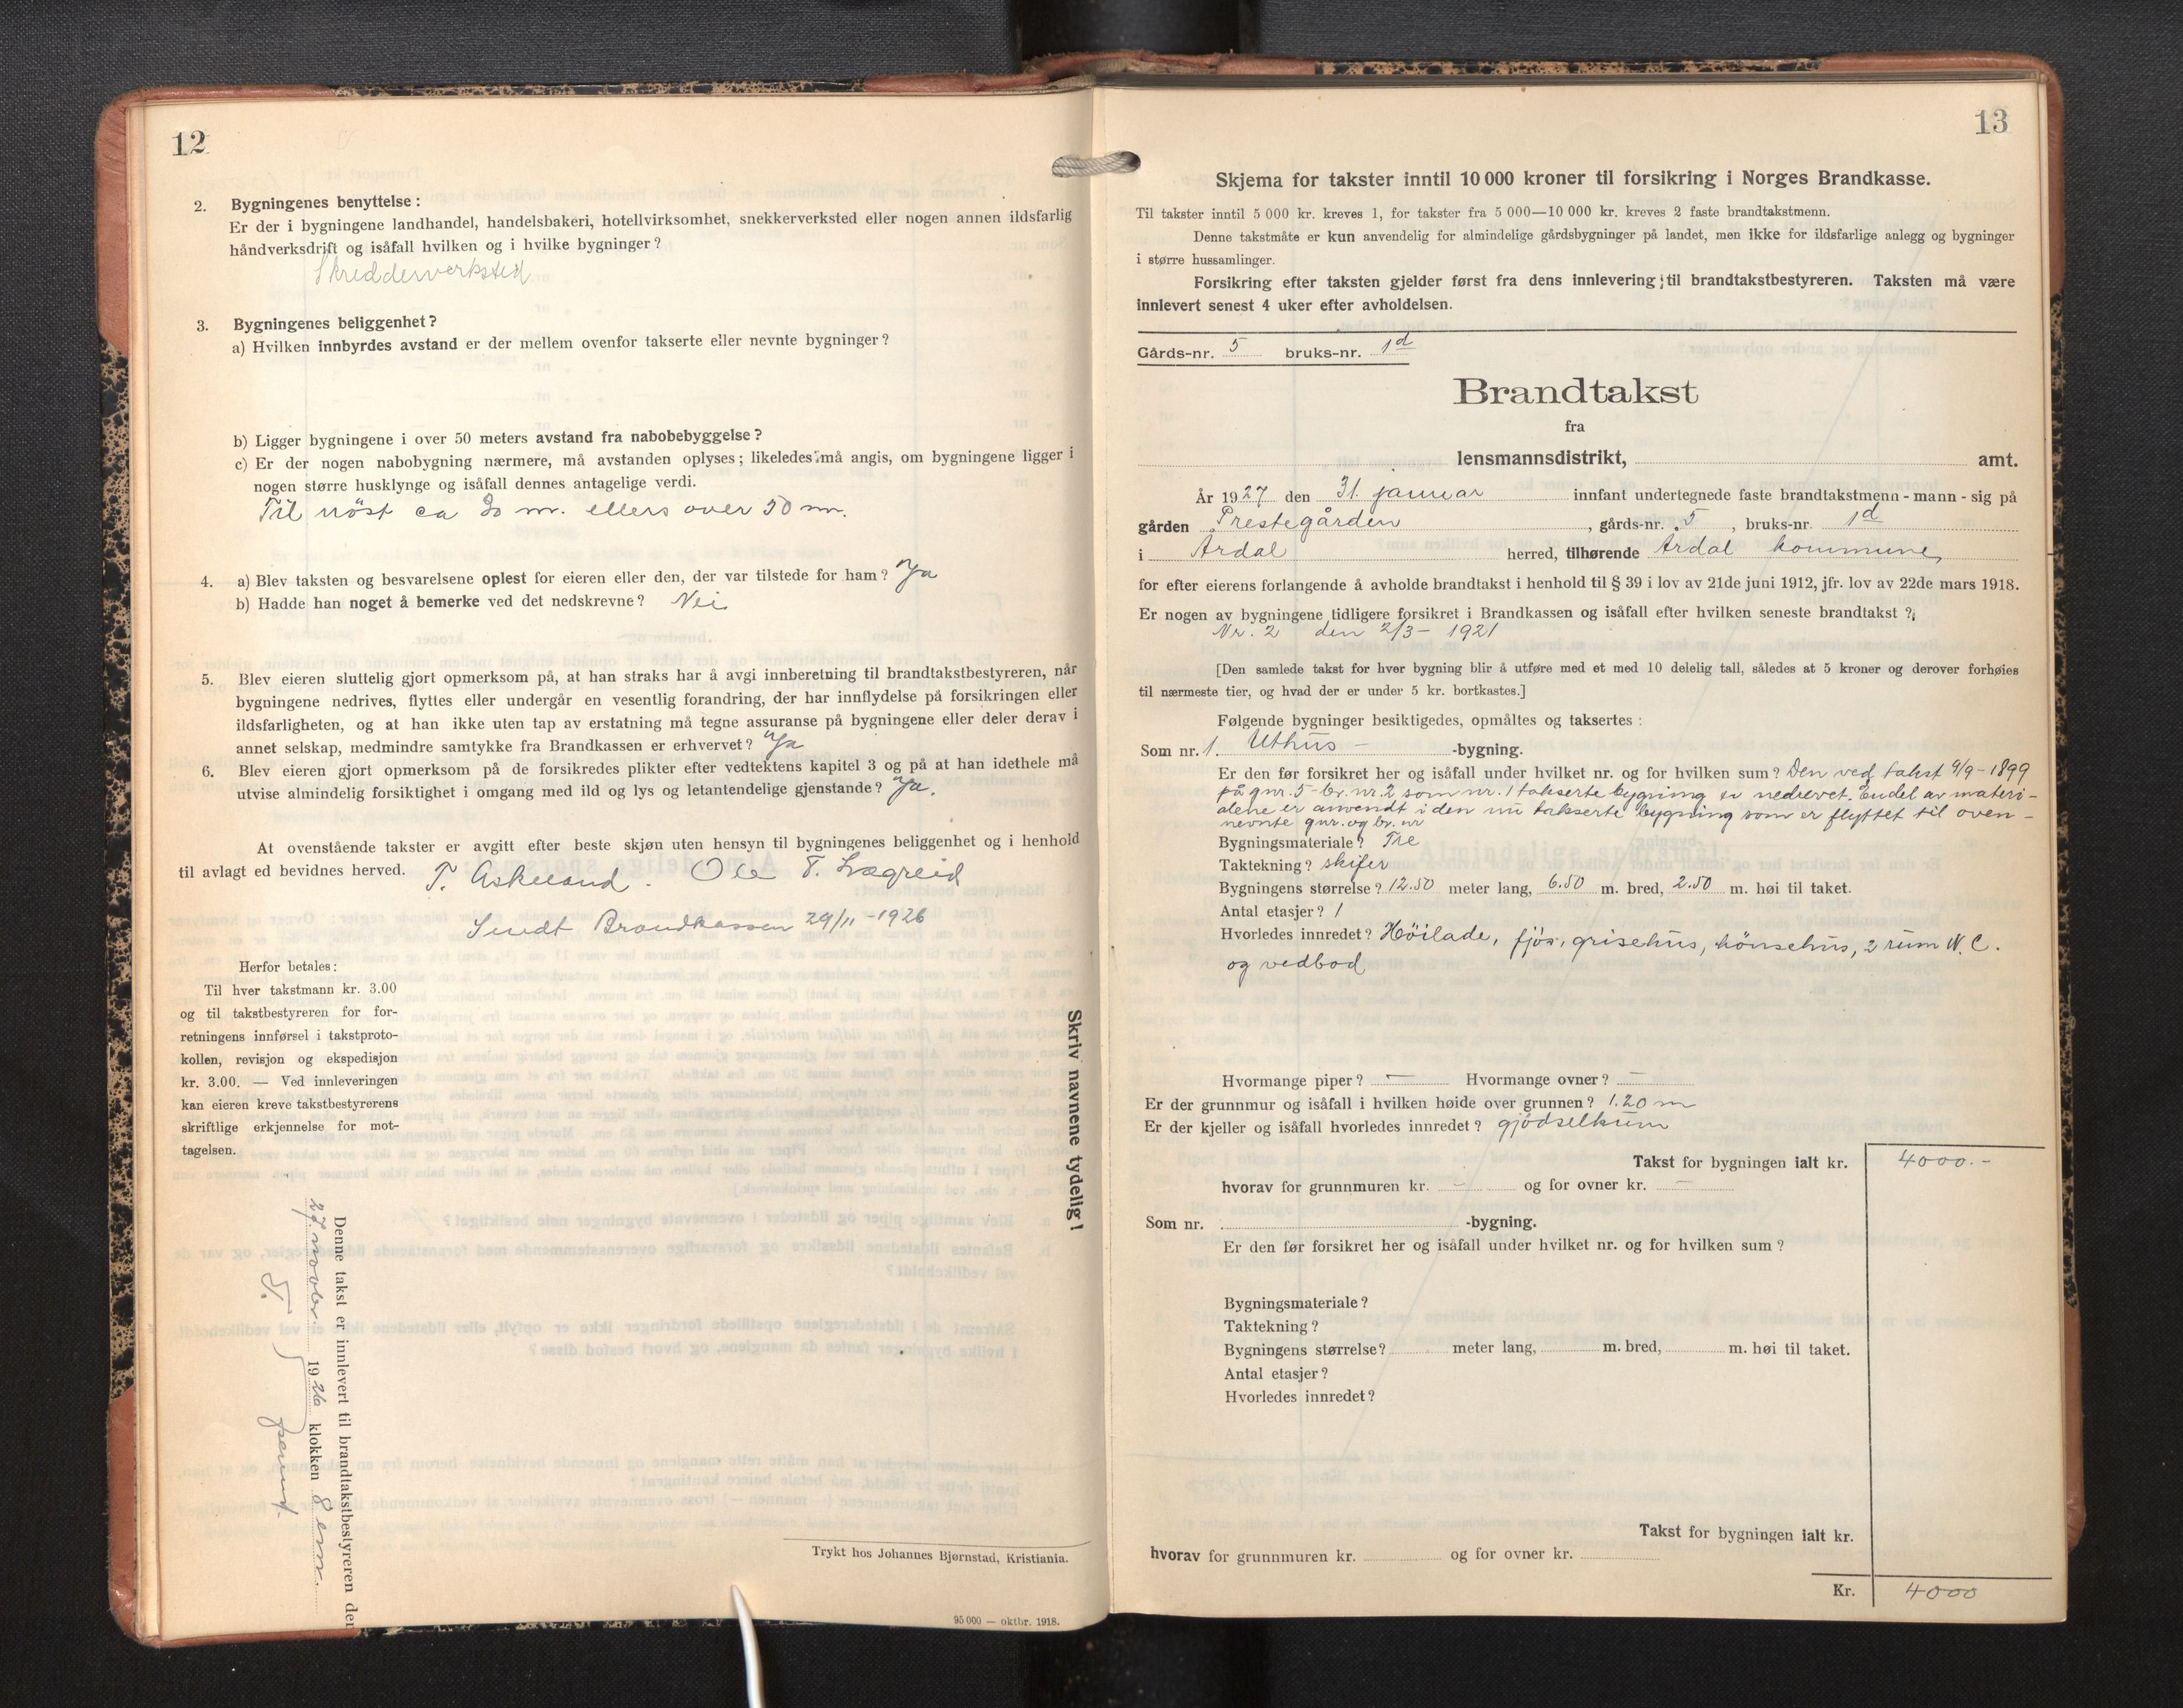 12
2. Bygningenes benyttelse:
Er der i bygningene landhandel, handelsbakeri, hotellvirksomhet, snekkerverksted eller nogen annen ildsfarlig
håndverksdrift og isåfall hvilken og i hvilke bygninger?
Skredderverksted
3. Bygningenes beliggenhet?
a) Hvilken innbyrdes avstand er der mellem ovenfor takserte eller nevnte bygninger?
b) Ligger bygningene i over 50 meters avstand fra nabobebyggelse?
c) Er der nogen nabobygning nærmere, må avstanden oplyses; likeledes må angis, om bygningene ligger i
nogen større husklynge og isåfall dennes antagelige verdi.
Til nöst ca 30 m. ellers over 50 m.
4. a) Blev taksten og besvarelsene oplest for eieren eller den, der var tilstede for ham? Ja
b) Hadde han noget å bemerke ved det nedskrevne? Nei
5. Blev eieren sluttelig gjort opmerksom på, at han straks har å avgi innberetning til brandtakstbestyreren, når
bygningene nedrives, flyttes eller undergår en vesentlig forandring, der har innflydelse på forsikringen eller
ildsfarligheten, og at han ikke uten tap av erstatning må tegne assuranse på bygningene eller deler derav i
annet selskap, medmindre samtykke fra Brandkassen er erhvervet? Ja
6. Blev eieren gjort opmerksom på de forsikredes plikter efter vedtektens kapitel 3 og på at han idethele må
utvise almindelig forsiktighet i omgang med ild og lys og letantendelige gjenstande? Ja.
At ovenstående takster er avgitt efter beste skjøn uten hensyn til bygningenes beliggenhet og i henhold
til avlagt ed bevidnes herved. T. Askeland. Ole T. Lægreid
Sendt Brandkassen 29/11-1926
Herfor betales:
Til hver takstmann kr. 3.00
og til takstbestyreren for for-
retningens innførsel i takstproto-
kollen, revisjon og ekspedisjon
kr. 3.00. — Ved innleveringen
kan eieren kreve takstbestyrerens
skriftlige erkjennelse for mot-
tagelsen.
Skriv navnene tydelig!
Denne takst er innlevert til brandtakstbestyreren den
27 novbr. 1926 klokken 8 em.
Trykt hos Johannes Bjørnstad, Kristiania.
95 000 — oktbr. 1918.
13
Skjema for takster inntil 10 000 kroner til forsikring i Norges Brandkasse.
Til takster inntil 5 000 kr. kreves 1, for takster fra 5 000—10 000 kr. kreves 2 faste brandtakstmenn.
Denne takstmåte er kun anvendelig for almindelige gårdsbygninger på landet, men ikke for ildsfarlige anlegg og bygninger
i større hussamlinger.
Forsikring efter taksten gjelder først fra dens innlevering til brandtakstbestyreren. Taksten må være
innlevert senest 4 uker efter avholdelsen.
Gårds-nr. 5 bruks-nr. 1d
Brandtakst
fra
lensmannsdistrikt, amt.
År 1927 den 31. januar innfant undertegnede faste brandtakstmenn - mann - sig på
gården Prestegården, gårds-nr. 5, bruks-nr. 1d
i Årdal herred, tilhørende Årdal kommune,
for efter eierens forlangende å avholde brandtakst i henhold til § 39 i lov av 21de juni 1912, jfr. lov av 22de mars 1918.
Er nogen av bygningene tidligere forsikret i Brandkassen og isåfall efter hvilken seneste brandtakst?
Nr. 2 den 2/3- 1921
[Den samlede takst for hver bygning blir å utføre med et med 10 delelig tall, således at 5 kroner og derover forhøies
til nærmeste tier, og hvad der er under 5 kr. bortkastes.]
Følgende bygninger besiktigedes, opmåltes og taksertes:
Som nr. 1. Uthus - -bygning.
Er den før forsikret her og isåfall under hvilket nr. og for hvilken sum? Den ved takst 9/9-1899
på gnr. 5 - br. nr. 2 som nr. 1 takserte bygning er nedrevet. Endel av materi-
alene er anvendt i den nu takserte bygning som er flyttet til oven-
nevnte gnr. og br. nr
Bygningsmateriale? Tre
Taktekning? skifer
Bygningens størrelse? 12.50 meter lang, 6.50 m. bred, 2.50 m. høi til taket.
Antal etasjer? 1
Hvorledes innredet? Höilade, fjös, grisehus, hönsehus, 2 rum W.C.
og vedbod
Hvormange piper? — Hvormange ovner? —
Er der grunnmur og isåfall i hvilken høide over grunnen? 1.20 m
Er der kjeller og isåfall hvorledes innredet? gjödselkum
Takst for bygningen ialt kr. 4000.-
hvorav for grunnmuren kr. - og for ovner kr. —
Som nr. -bygning.
Er den før forsikret her og isåfall under hvilket nr. og for hvilken sum?
Bygningsmateriale?
Taktekning?
Bygningens størrelse? meter lang, m. bred, m. høi til taket.
Antal etasjer?
Hvorledes innredet?
Takst for bygningen ialt kr.
hvorav for grunnmuren kr. og for ovner kr.
Kr. 4000